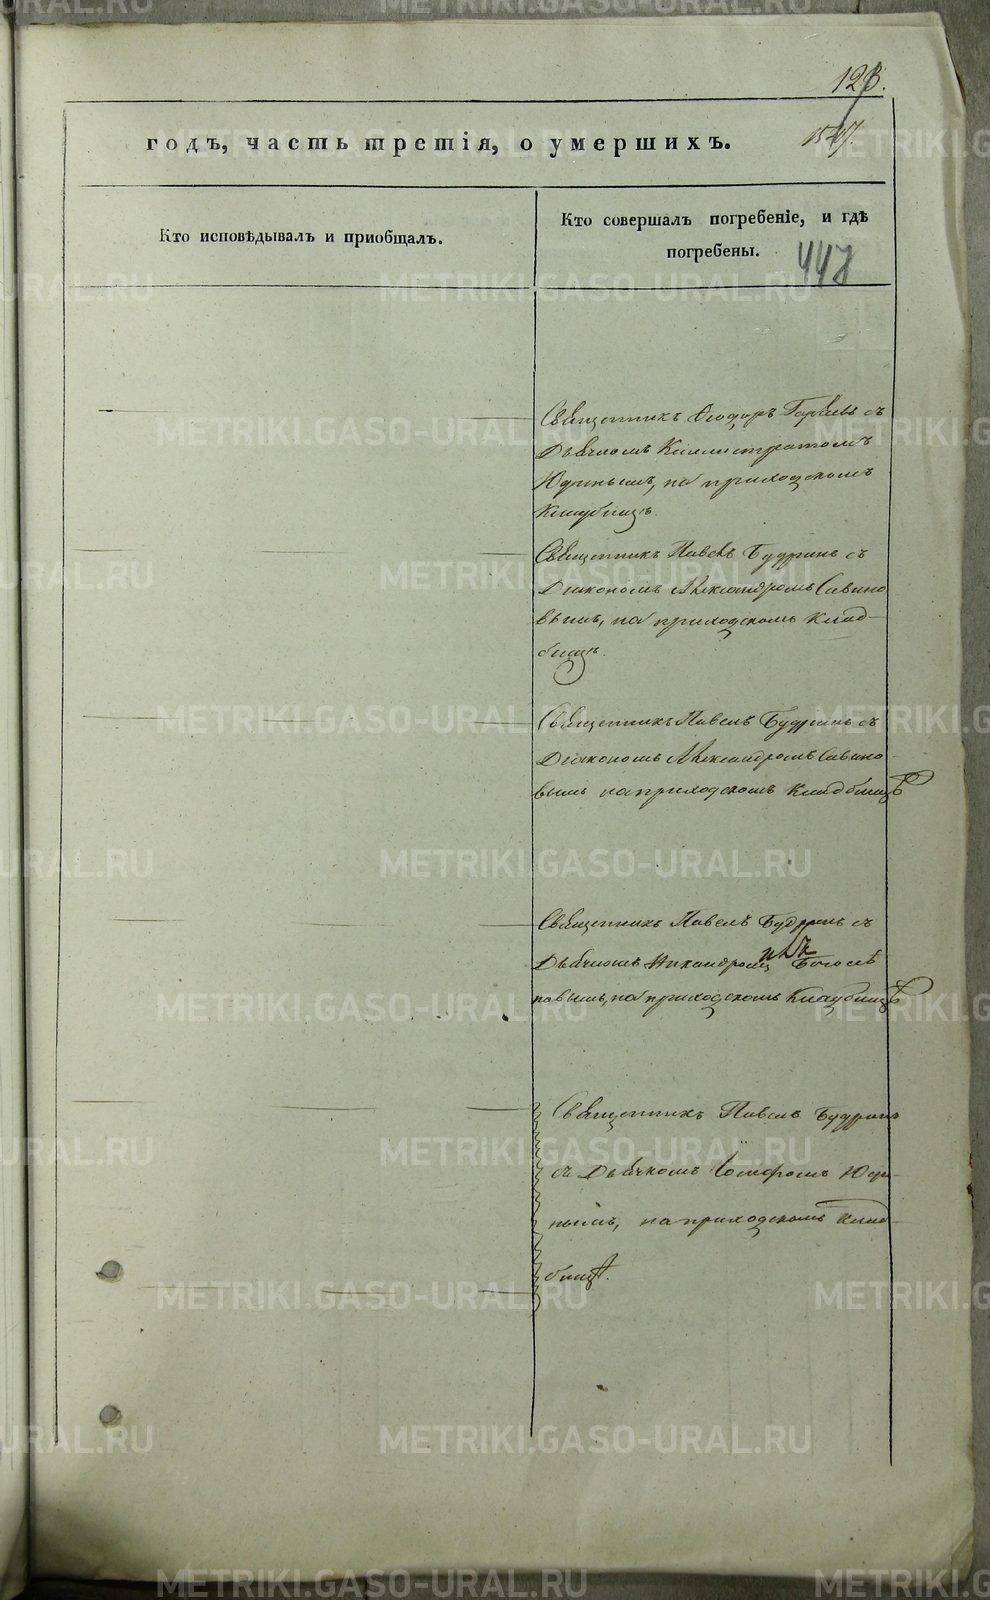 123.
годъ, часть третія, о умершихъ.
Кто исповѣдывалъ и пріобщалъ.
Кто совершалъ погребеніе, и гдѣ
погребены.
447
Священникъ Ѳеодоръ съ
Дьячкомъ Каллистратомъ
Юдинымъ, на приходскомъ
Кладбищѣ.
Священникъ Павелъ Будринъ съ
Діакономъ Александромъ Савино
вымъ, на приходскомъ Клад-
бищѣ.
Священникъ Павелъ Будринъ съ
Діакономъ Александромъ Савино-
вымъ на приходскомъ Кладбищѣ
Священникъ Павелъ Будринъ съ
Дьячкомъ Никандромъ
повымъ, на приходскомъ Кладбищѣ
Священникъ Павелъ Будринъ
съ Дьячкомъ Юди-
нымъ, на приходскомъ Клад-
бищѣ.
METRIKI.GASO-URAL.RU